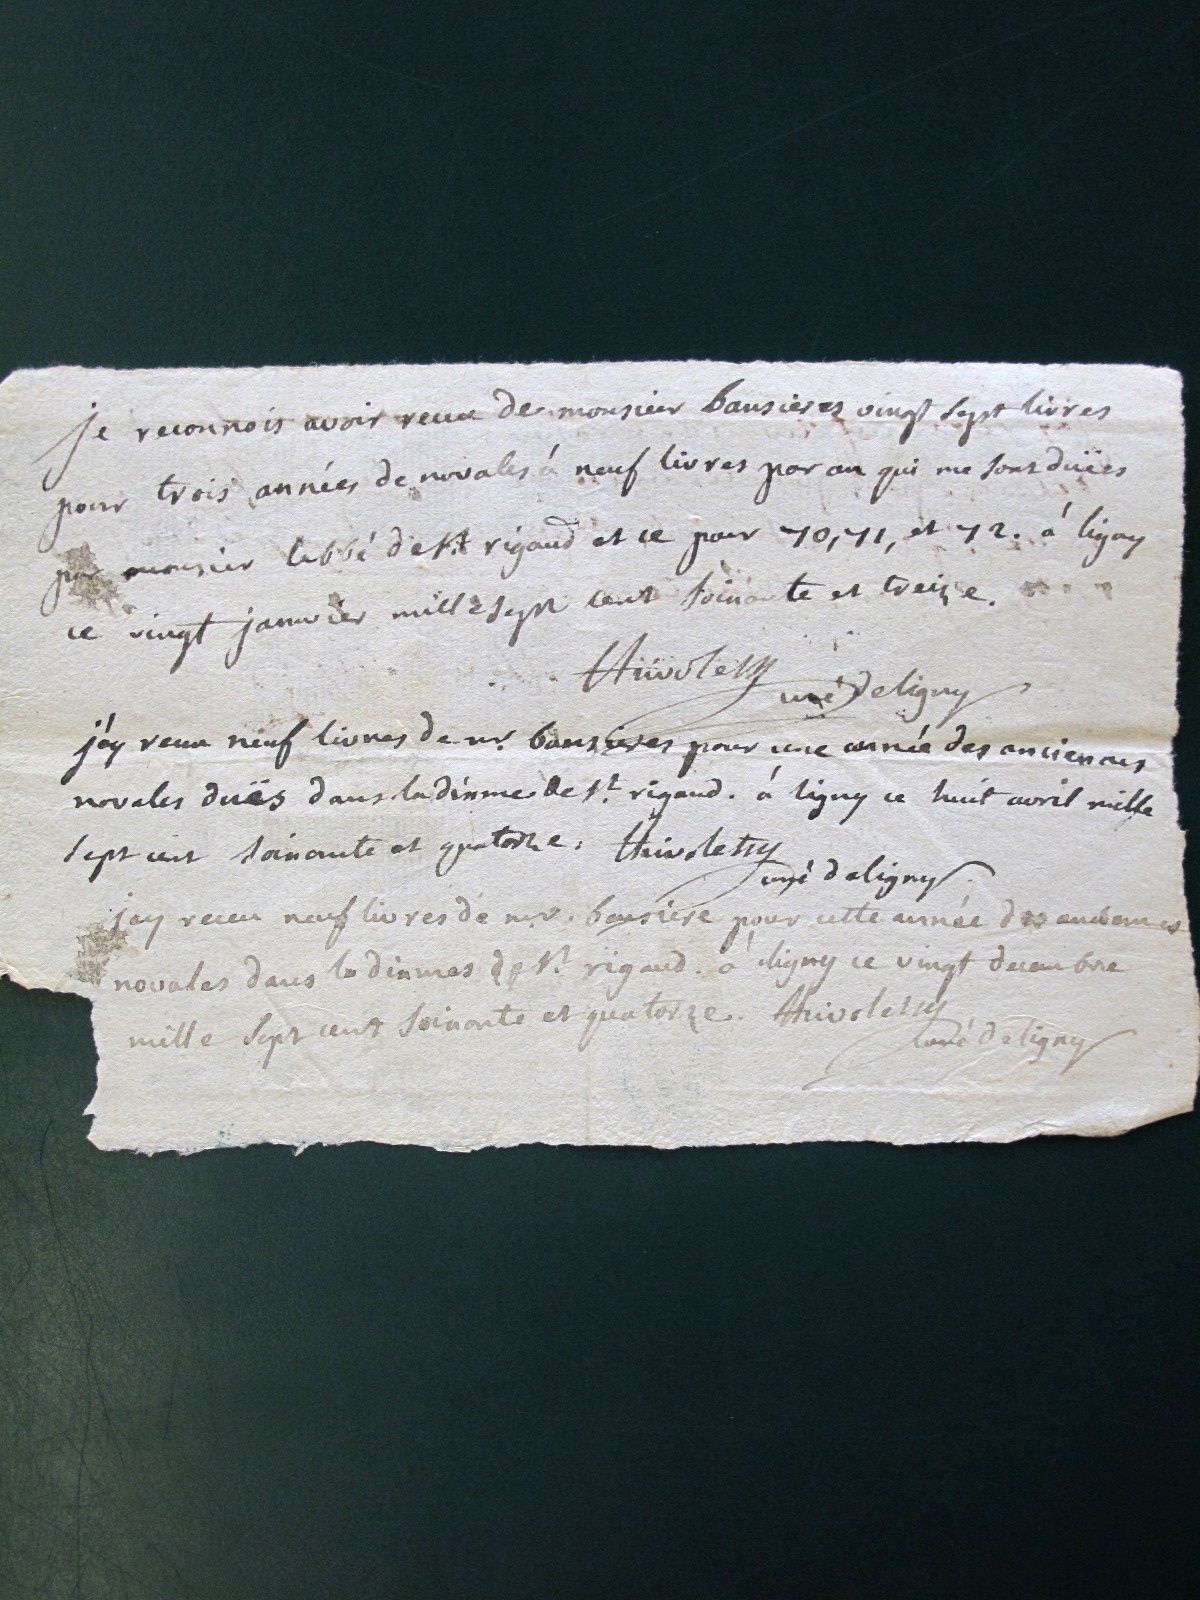 je reconnois avoir receu de monsieur bansieres vingt sept livres
pour trois années de novales à neuf livres par an qui me sont duëes
par monsieur labbé de st rigaud et ce pour 70, 71, et 72. à ligny
ce vingt janvier mille sept cent soixante et treize.
curé de ligny
j'ay receu neuf livres de mr. bansieres pour une année des anciennes
novales duës dans la dixme de st. rigaud. à ligny ce huit avril mille
sept cent soixante et quatorze.
curé de ligny
jay receu neuf livres de mr. bansiere pour cette année des anciennes
novales dans la dixmes de st. rigaud. à ligny ce vingt decembre
mille sept cent soixante et quatorze.
curé de ligny